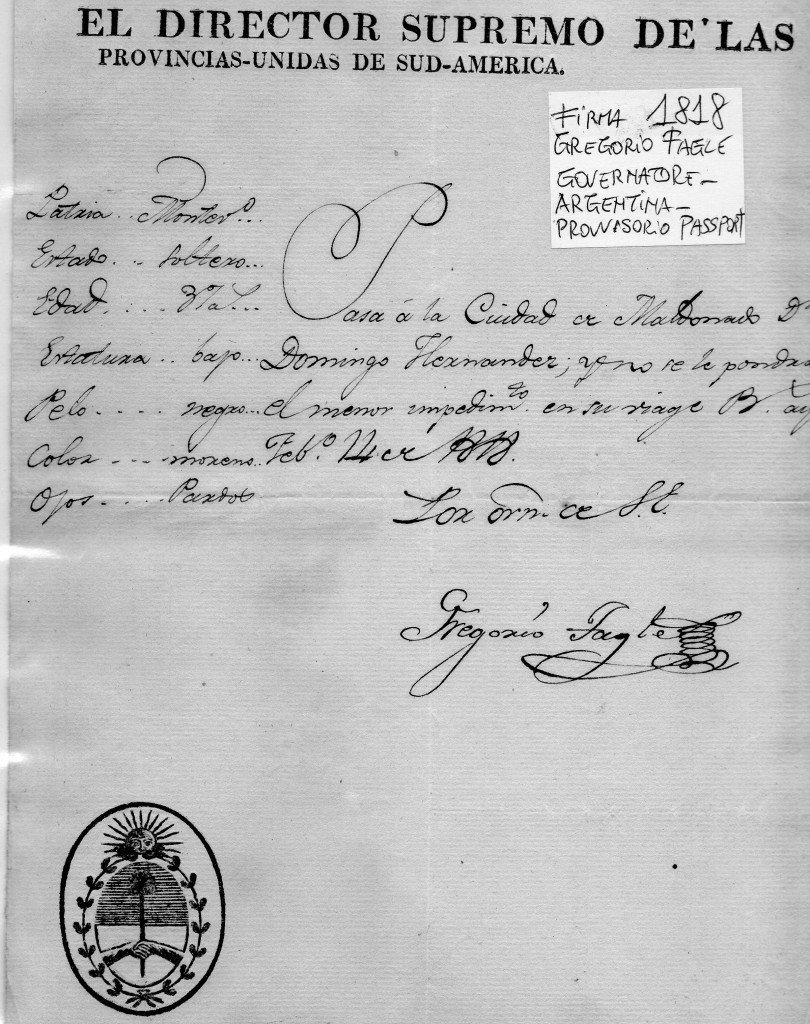 EL DIRECTOR SUPREMO DE LAS
PROVINCIAS-UNIDAS DE SUD-AMERICA.
FIRMA 1818
GREGORIO FAGLE
GOVERNATORE-
ARGENTINA-
PROVVISORIO PASSPORT
Patria .. Montevo...
Estado ... soltero...
Edad ....
Pasa á la Ciudad de Maldonado Dn
Estatura .. bajo... Domingo Hernandez; y no se le pondra
Pelo .... negro... el menor impedimto. en su viage Bs. ay
Color ... moreno.. Febo. de 1818.
Ojos .... Pardos
Por orn. de S.E.
Gregorio Tagle